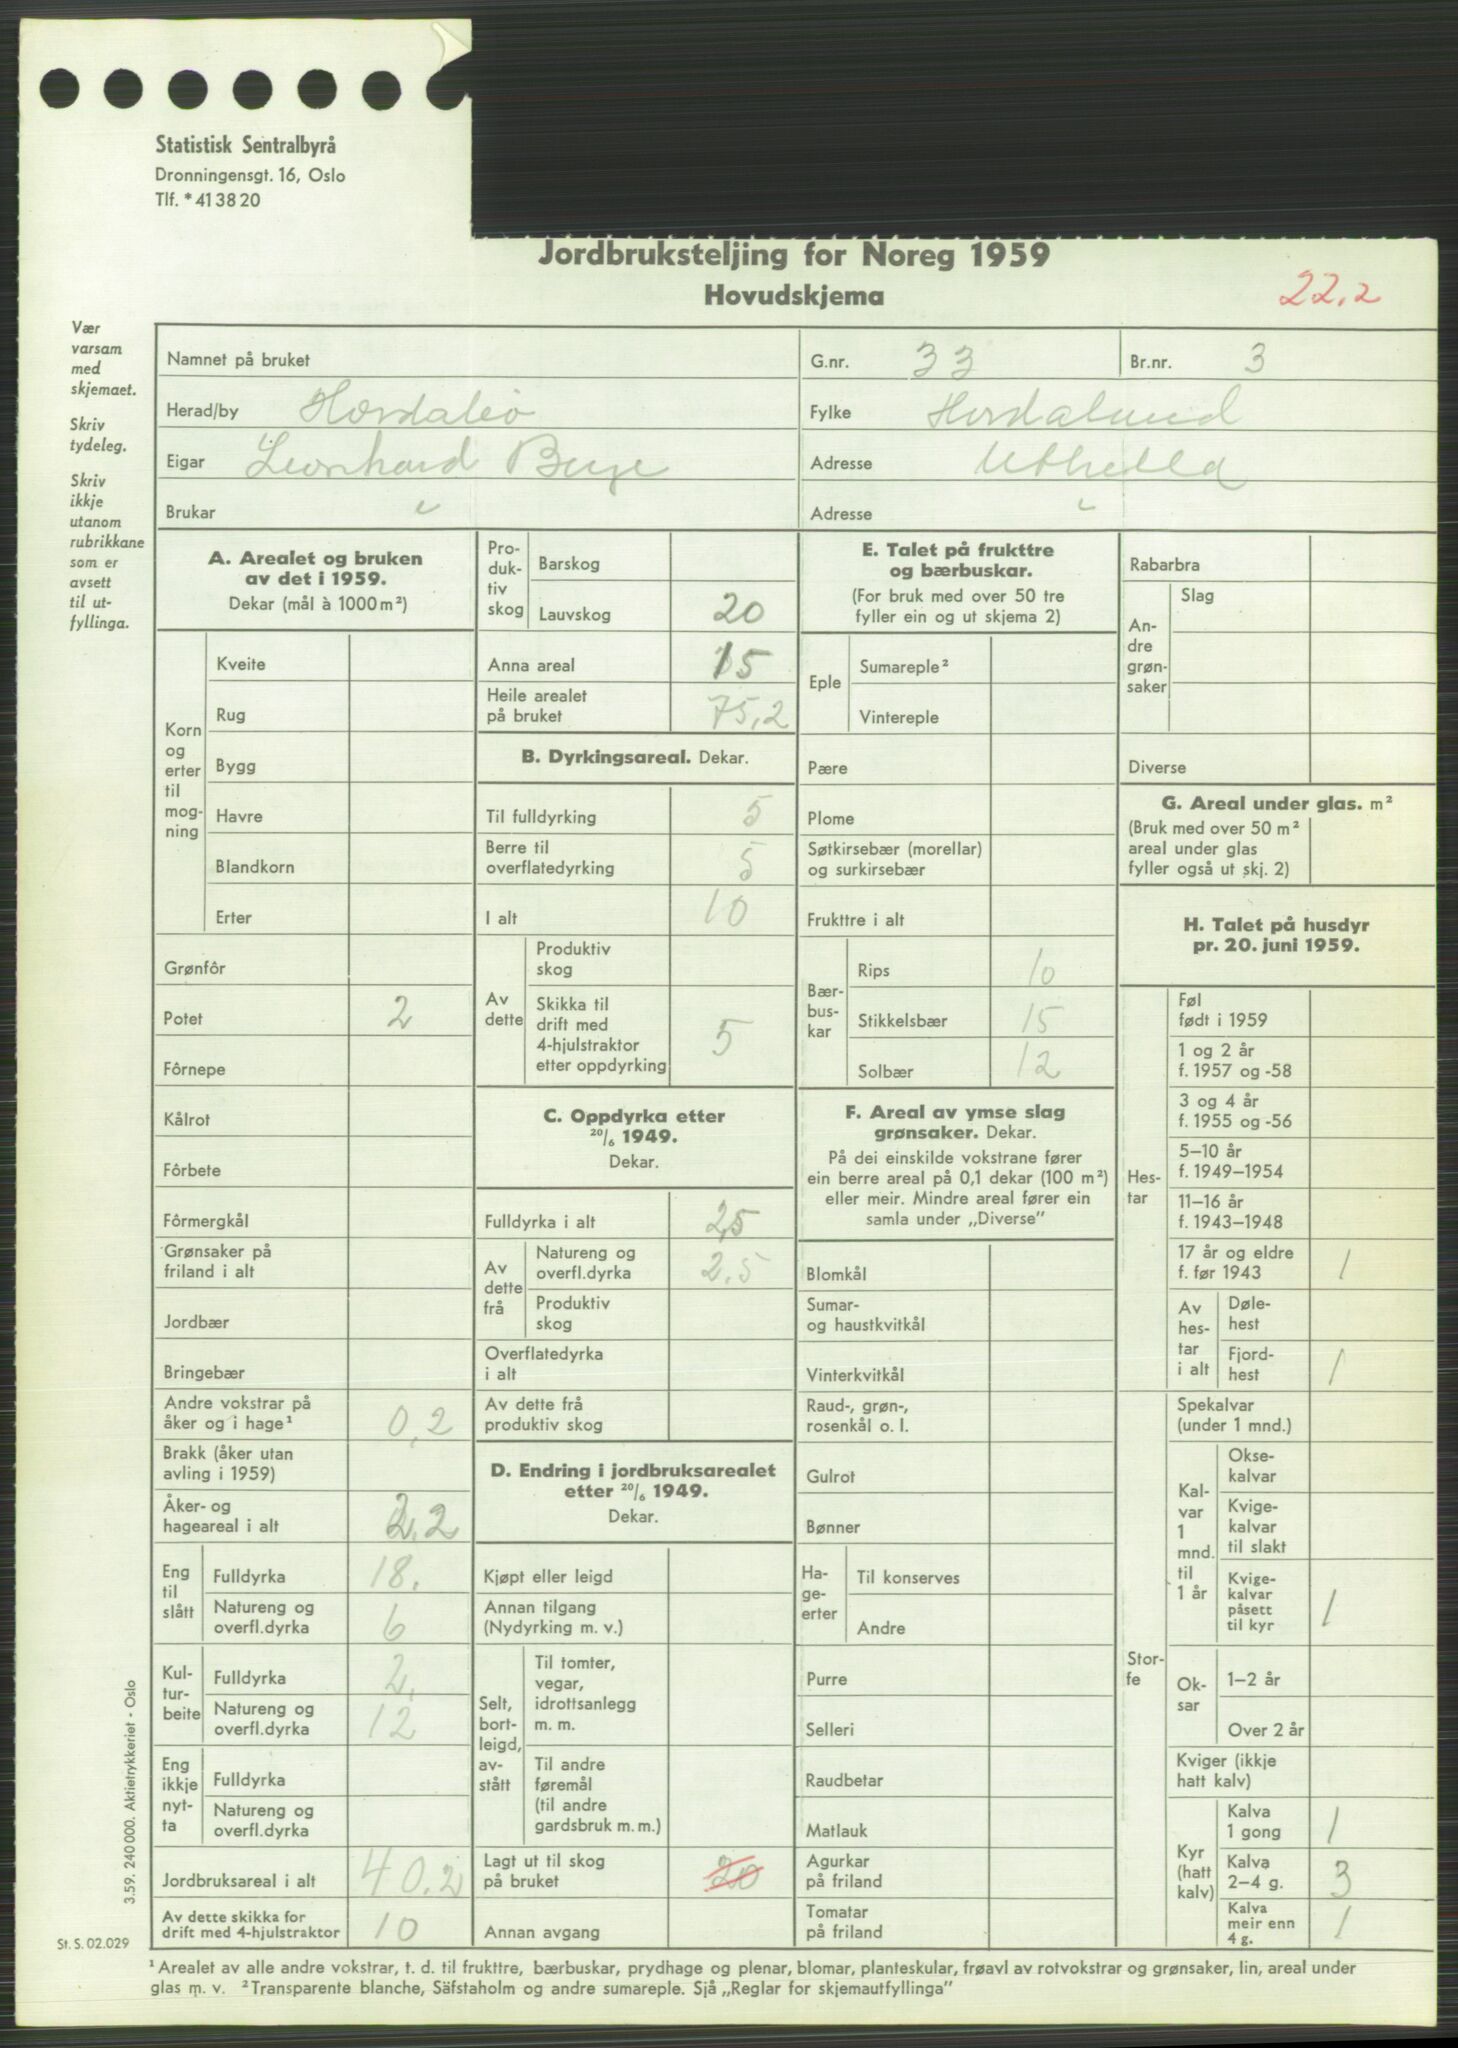 Statistisk Sentralbyrå
Dronningensgt. 16, Oslo
Tlf. * 41 38 20
Jordbruksteljing for Noreg 1959
Hovudskjema
22.2
Vær
varsam
med
skjemaet.
Skriv
tydeleg.
Skriv
ikkje
utanom
rubrikkane
som er
avsett
til ut-
fyllinga.
Namnet på bruket
G.nr. 33 Br.nr. 3
Herad/by
Fylke Hordaland
Eigar Leonhard Berge
Adresse
Brukar "
Adresse "
A. Arealet og bruken
av det i 1959.
Dekar (mål à 1000 m²)
Korn
og
erter
til
mog-
ning
Kveite
Rug
Bygg
Havre
Blandkorn
Erter
Grønfôr
Potet 2
Fôrnepe
Kålrot
Fôrbete
Fôrmergkål
Grønsaker på
friland i alt
Jordbær
Bringebær
Andre vokstrar på
åker og i hage¹ 0,2
Brakk (åker utan
avling i 1959)
Åker- og
hageareal i alt 2,2
Eng
til
slått
Fulldyrka 18.
Natureng og
overfl.dyrka 6
Kul-
tur-
beite
Fulldyrka 2.
Natureng og
overfl.dyrka 12
Eng
ikkje
nyt-
ta
Fulldyrka
Natureng og
overfl.dyrka
Jordbruksareal i alt 40.2
Av dette skikka for
drift med 4-hjulstraktor 10
Pro-
duk-
tiv
skog
Barskog
Lauvskog 20
Anna areal 15
Heile arealet
på bruket 75,2
B. Dyrkingsareal. Dekar.
Til fulldyrking 5
Berre til
overflatedyrking 5
I alt 10
Av
dette
Produktiv
skog
Skikka til
drift med
4-hjulstraktor
etter oppdyrking 5
C. Oppdyrka etter
20/6 1949.
Dekar.
Fulldyrka i alt 2,5
Av
dette
frå
Natureng og
overfl.dyrka 2.5
Produktiv
skog
Overflatedyrka
i alt
Av dette frå
produktiv skog
D. Endring i jordbruksarealet
etter 20/6 1949.
Dekar.
Kjøpt eller leigd
Annan tilgang
(Nydyrking m. v.)
Selt,
bort-
leigd,
av-
stått
Til tomter,
vegar,
idrottsanlegg
m. m.
Til andre
føremål
(til andre
gardsbruk m. m.)
Lagt ut til skog
på bruket 20
Annan avgang
E. Talet på frukttre
og bærbuskar.
(For bruk med over 50 tre
fyller ein og ut skjema 2)
Eple
Sumareple²
Vintereple
Pære
Plome
Søtkirsebær (morellar)
og surkirsebær
Frukttre i alt
Bær-
bus-
kar
Rips 10
Stikkelsbær 15
Solbær 12
F. Areal av ymse slag
grønsaker. Dekar.
På dei einskilde vokstrane fører
ein berre areal på 0,1 dekar (100 m²)
eller meir. Mindre areal fører ein
samla under „Diverse”
Blomkål
Sumar-
og haustkvitkål
Vinterkvitkål
Raud-, grøn-,
rosenkål o. l.
Gulrot
Bønner
Ha-
ge-
erter
Til konserves
Andre
Purre
Selleri
Raudbetar
Matlauk
Agurkar
på friland
Tomatar
på friland
Rabarbra
An-
dre
grøn-
saker
Slag
Diverse
G. Areal under glas. m²
(Bruk med over 50 m²
areal under glas
fyller også ut skj. 2)
H. Talet på husdyr
pr. 20. juni 1959.
Hes-
tar
Føl
født i 1959
1 og 2 år
f. 1957 og -58
3 og 4 år
f. 1955 og -56
5–10 år
f. 1949–1954
11–16 år
f. 1943–1948
17 år og eldre
f. før 1943 1
Av
hes-
tar
i alt
Døle-
hest
Fjord-
hest 1
Stor-
fe
Spekalvar
(under 1 mnd.)
Kal-
var
1
mnd.
til
1 år
Okse-
kalvar
Kvige-
kalvar
til slakt
Kvige-
kalvar
påsett
til kyr 1
Ok-
sar
1–2 år
Over 2 år
Kviger (ikkje
hatt kalv)
Kyr
(hatt
kalv)
Kalva
1 gong 1
Kalva
2–4 g. 3
Kalva
meir enn
4 g. 1
3.59. 240 000. Aktietrykkeriet - Oslo
St. S. 02.029
¹ Arealet av alle andre vokstrar, t. d. til frukttre, bærbuskar, prydhage og plenar, blomar, planteskular, frøavl av rotvokstrar og grønsaker, lin, areal under
glas m. v. ² Transparente blanche, Säfstaholm og andre sumareple. Sjå „Reglar for skjemautfyllinga”